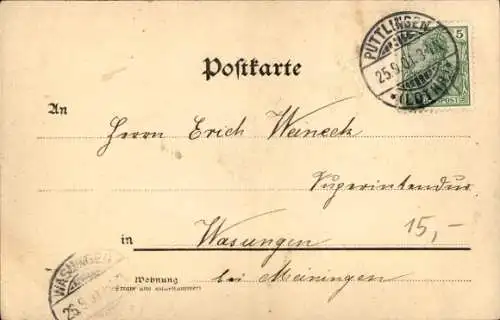 PÜTTLINGEN
5
25.9.01.3-4N.
* (LOTHR.) *
Postkarte
An
Herrn Erich Weineck
Superintendur
15,-
in Wasungen
WASUNGEN
Wohnung
bei Meiningen
(Strasse und Hausnummer)
26.9.01